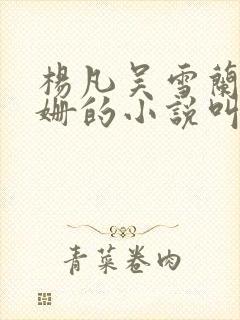 楊凡吴雪蘭
姍的小説叫
青菜卷肉